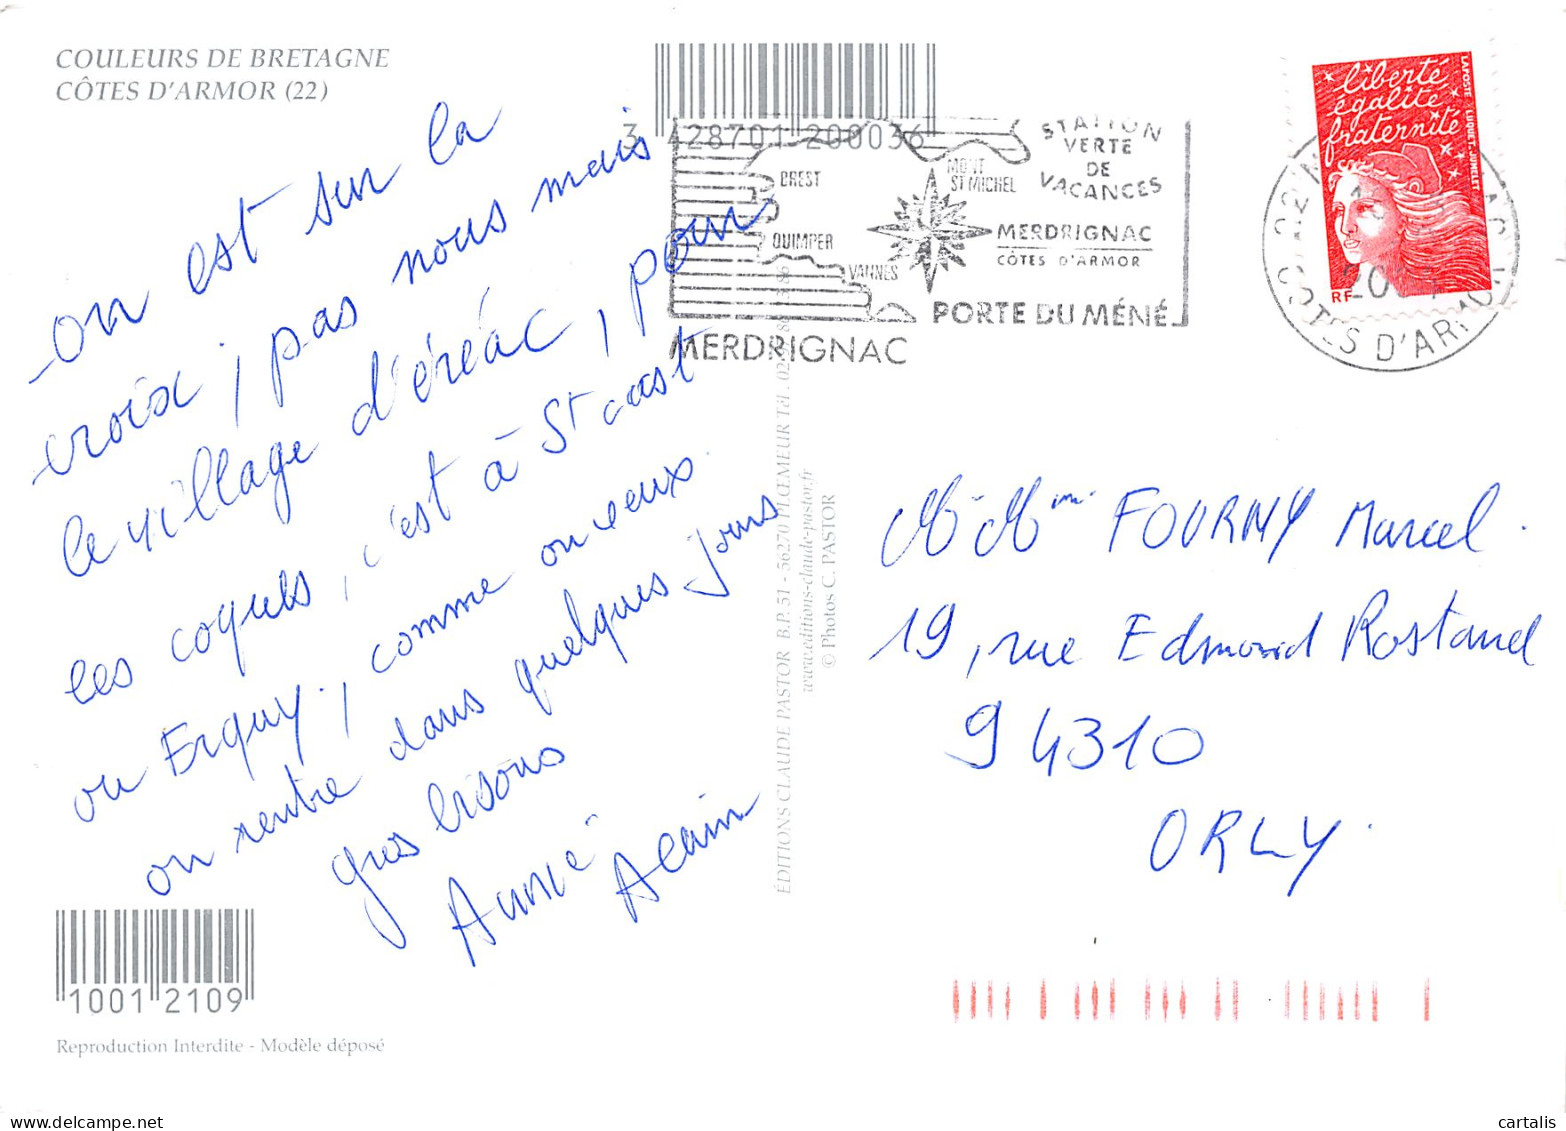 COULEURS DE BRETAGNE
CÔTES D'ARMOR (22)
on est sur la
croix, pas nous mais
le village d'éréac, pour
les coquets, c'est à St cast
ou Erquy, comme on veux.
on rentre dans quelques jours
gros bisous
Annie
Alain
10012109
Reproduction Interdite - Modèle déposé
3 428701 200036
BREST
QUIMPER
VANNES
MONT
ST MICHEL
STATION
VERTE
DE
VACANCES
MERDRIGNAC
CÔTES D'ARMOR
PORTE DU MÉNÉ
MERDRIGNAC
ÉDITIONS CLAUDE PASTOR B.P. 51 - 56270 PLŒMEUR Tél. 02
www.editions-claude-pastor.fr
© Photos C. PASTOR
liberté
égalité
fraternité
LA POSTE LUQUET - JUMELET
RF
22
COTES D'ARMOR
M. Mme FOURNY Marcel.
19, rue Edmond Rostand
94310
ORLY.
cartalis